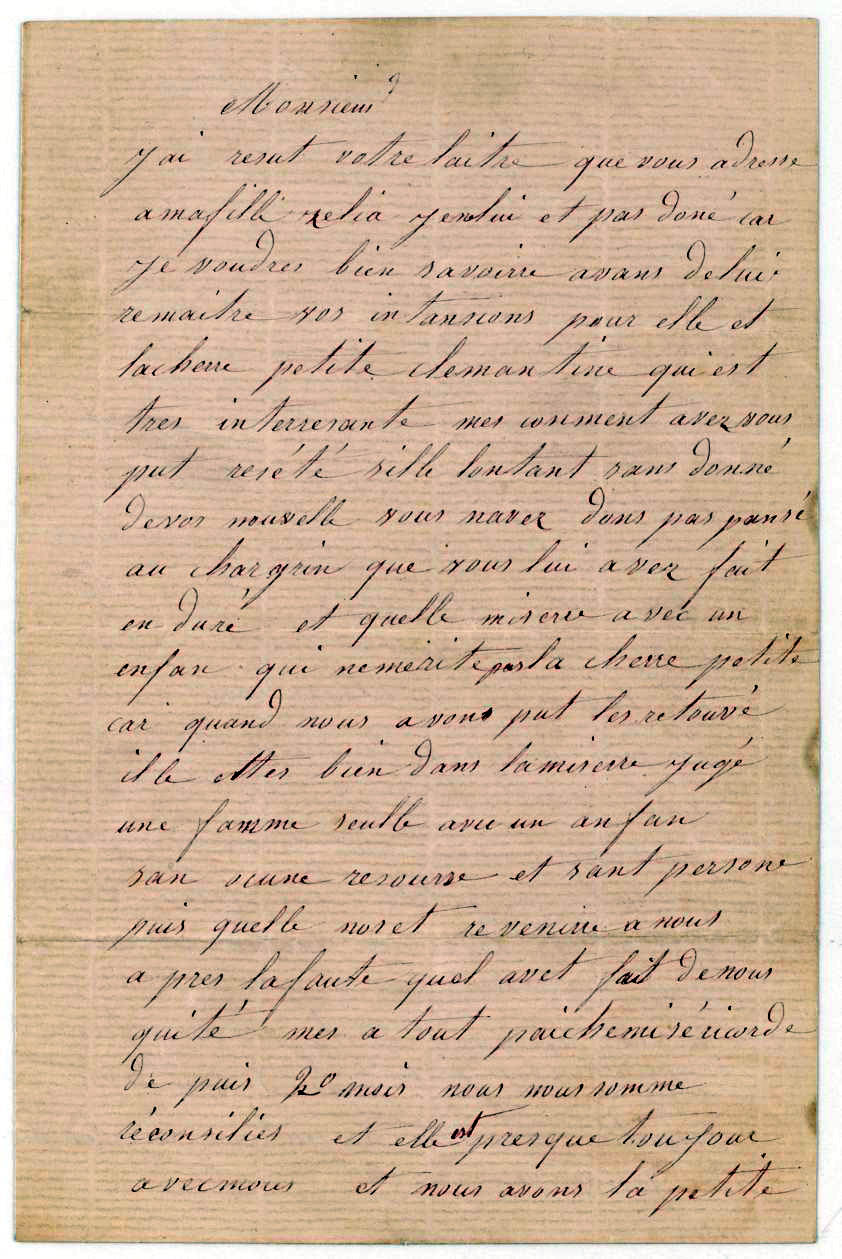 Monsieur
J ai resut votre laitre que vous adresse
a mafille zelia Jenlui et pas doné car
Je voudres bien savoirre avans delui
remaitre vos intansions pour elle et
lacherre petite clemantine qui est
tres interresante mes comment avez vous
put resété sille lontant sans donné
devos nouvelle vous navez dons pas pansé
au chargrin que vous lui avez fait
en duré et quelle miserre avec un
enfan qui nemérite pas la cherre petite
car quand nous avons put les retouvé
ille ettes bien dans lamiserre Jugé
une famme seulle avec un anfan
san ocune resourse et sant persone
puis quelle noset revenirre a nous
a pres lafaute quel avet fait denous
quité mes a tout paiche miséricorde
de puis mois nous nous somme
réconsiliés et elle est presque toujour
avecnous et nous avons la petite